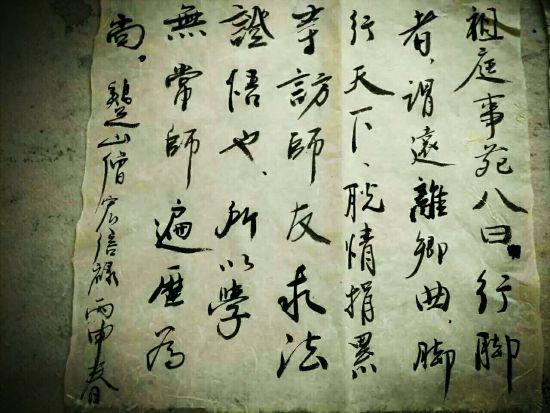 祖庭事苑八曰。行脚
者、謂遠離鄉曲、脚
行天下、脱情捐累
寻訪師友求法
證悟也、所以學
無常師遍歷為
尚。雞足山僧宏信禄丙申春